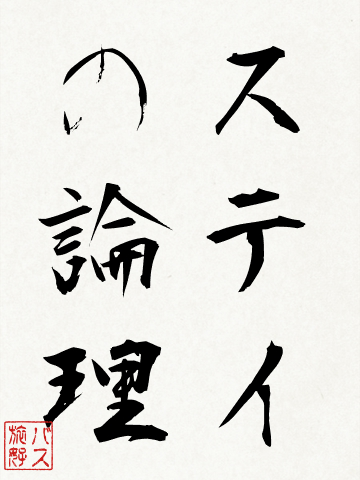 スティ
の論理
バス
旅野